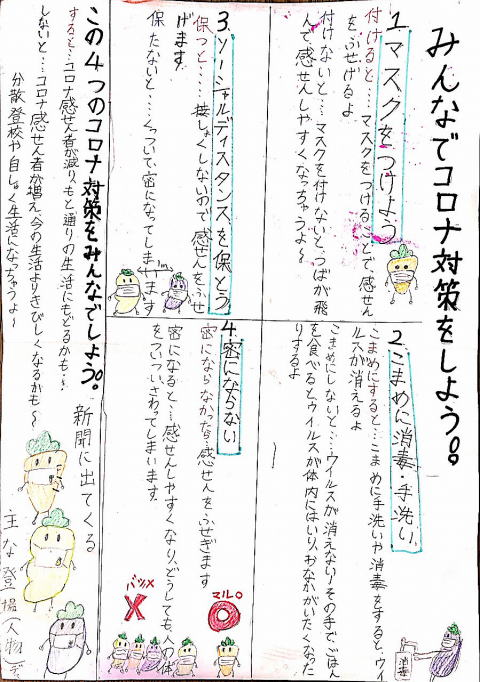 みんなでコロナ対策をしよう。
1.マスクをつけよう
付けると…マスクをつけることで、感せん
をふせげるよ
付けないと…マスクを付けないと、つばが飛
んで感せんしやすくなっちゃうよ〜
2.こまめに消毒・手洗い
こまめにすると…こまめに手洗いや消毒をすると、ウイ
ルスが消えるよ
こまめにしないと…ウイルスが消えない!その手でごはん
を食べると、ウイルスが体内にはいり、おなかがいたくなった
りするよ
消毒
3.ソーシャルディスタンスを保とう
保つと…接しょくしないので感せんをふせ
げます
保たないと…くっついて、密になってしまいます
4.密にならない
密にならなかったら…感せんをふせぎます
密になると…感せんしやすくなり、どうしても、人の体
をついついさわってしまいます。
マル○
バツ×
この4つのコロナ対策をみんなでしよう。
すると…コロナ感せん者が減り、もと通りの生活にもどるかも〜
しないと…コロナ感せん者が増え、今の生活よりきびしくなるかも〜
分散登校や自しゅく生活になっちゃうよ〜
新聞に出てくる
主な登場(人物)デ